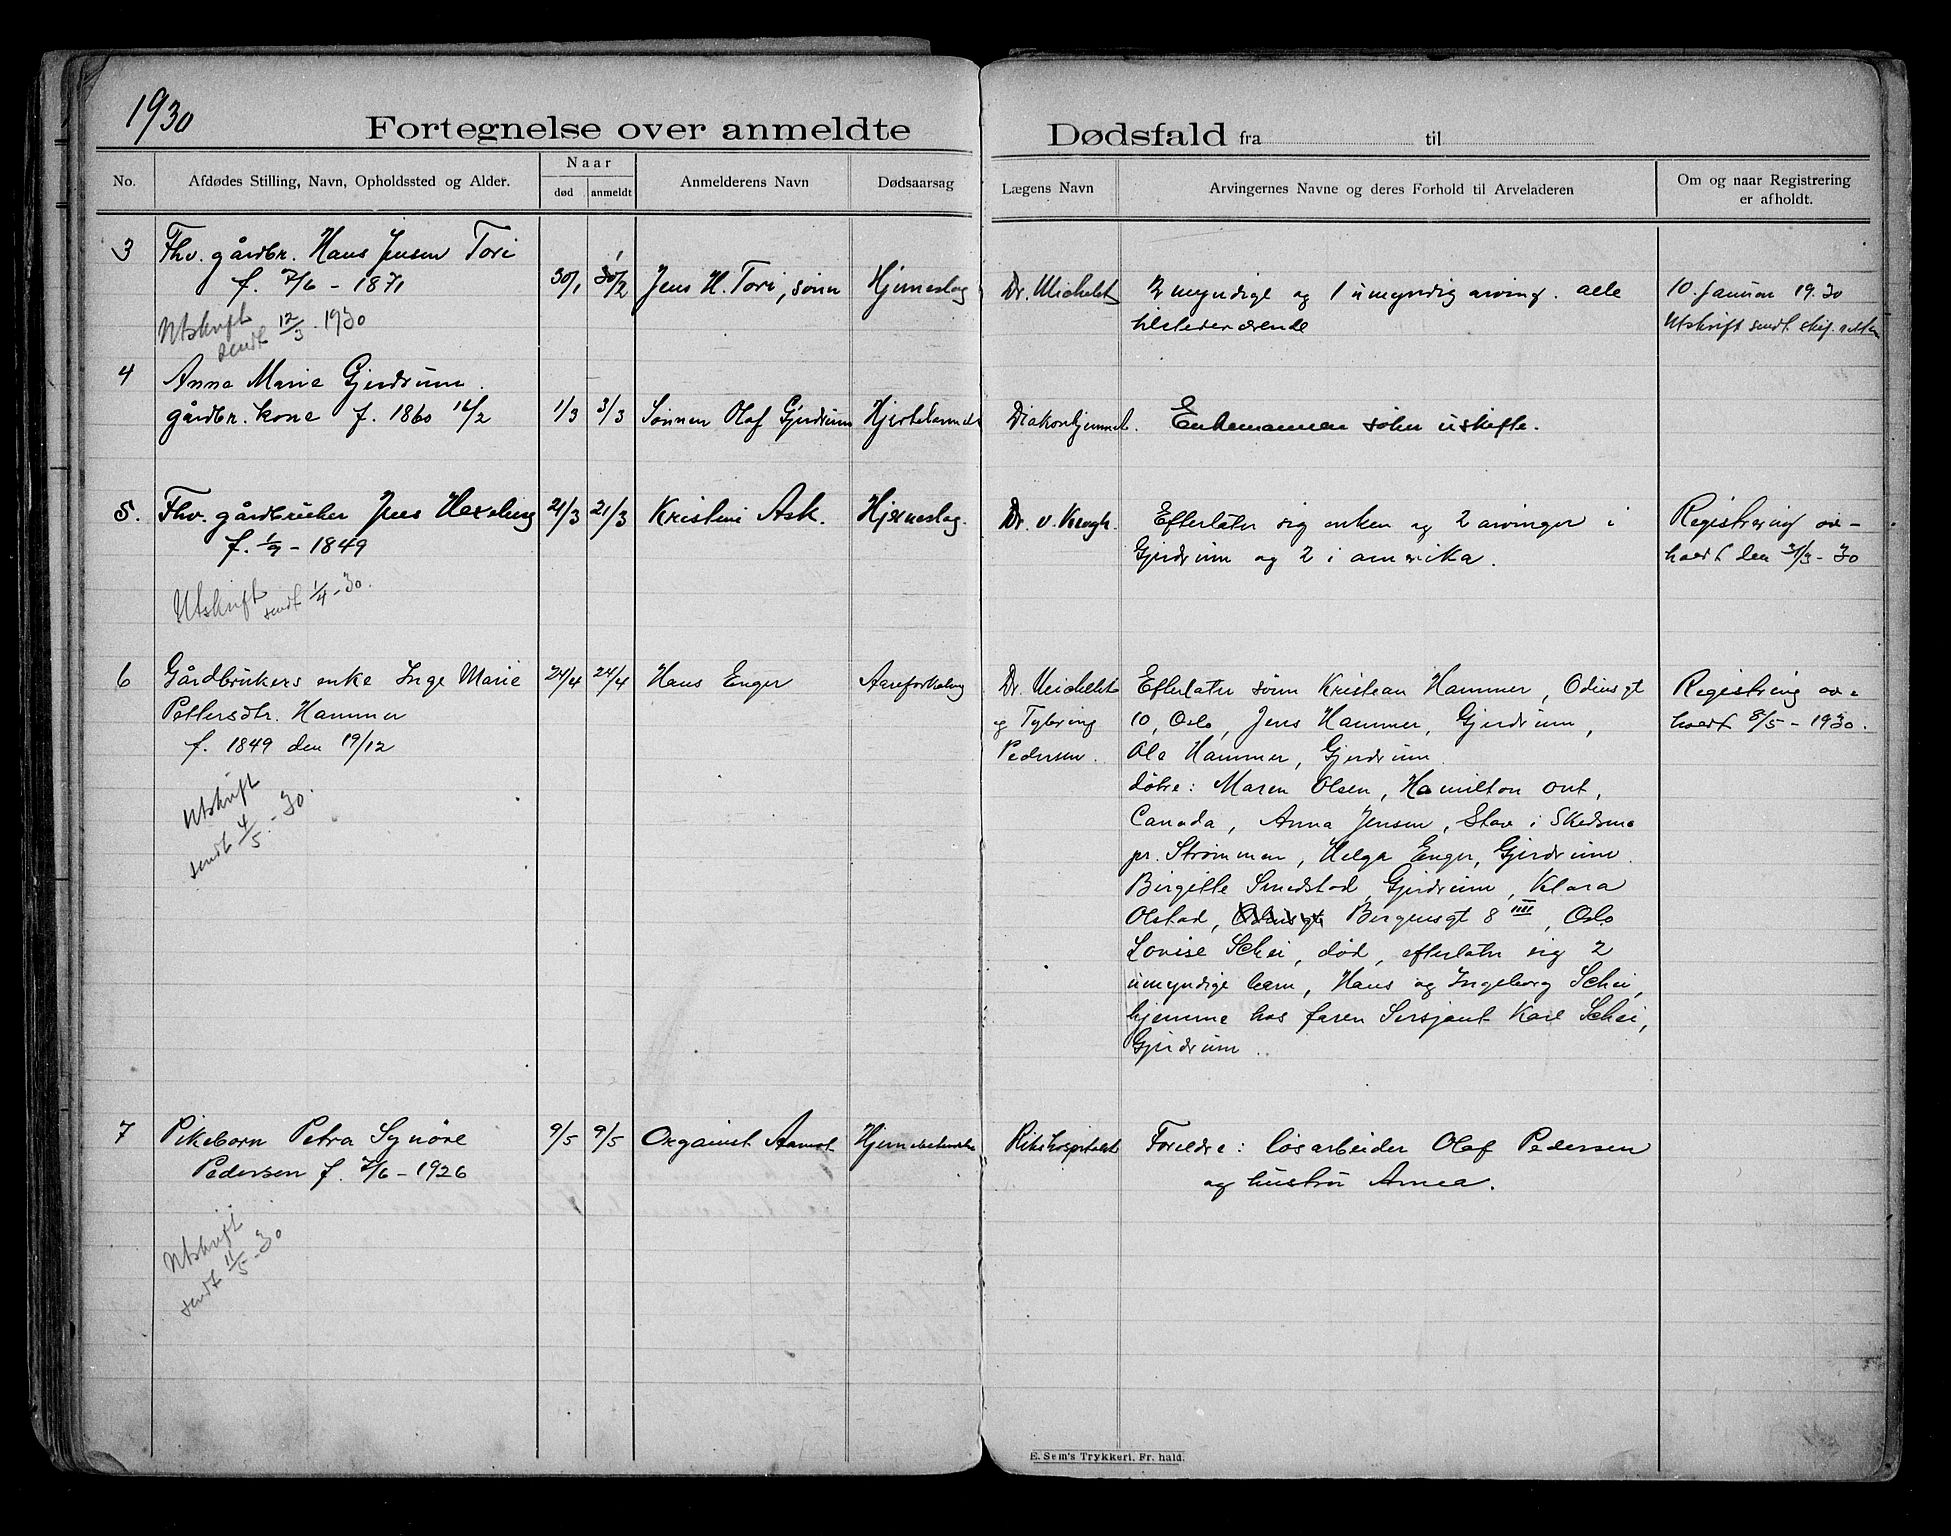 1930
Fortegnelse over anmeldte Dødsfald fra til
No.
Afdødes Stilling, Navn, Opholdssted og Alder.
Naar
død
anmeldt
Anmelderens Navn
Dødsaarsag
Lægens Navn
Arvingernes Navne og deres Forhold til Arveladeren
Om og naar Registrering
er afholdt.
3
Fhv. gårdbr. Hans Jensen Tori
f. 7/6 - 1871
Utskrift
sendt 12/3 - 1930
30/1
Jens H. Tori, sønn
Hjerneslag
Dr. Michelet
2 myndige og 1 umyndig arving. alle
tilstedeværende
10. Januar 19.30
Utskrift sendt skif.retten
4
Anna Marie Gjerdrum.
gårdbr. kone f. 1860 16/2
1/3
3/3
Sønnen Olaf Gjerdrum
Hjertelammelse
Diakonhjemmet.
Enkemannen sitter i uskifte.
5.
Fhv. gårdbruker Jens Hexeberg
f. 1/9 - 1849
Utskrift
sendt 1/4 - 30.
21/3
21/3
Kristine Ask.
Hjerneslag.
Dr. v. Krogh.
Efterlater sig enken og 2 arvinger i
Gjerdrum og 2 i amerika.
Registrering av-
holdt den 31/3 - 30
6
Gårdbrukers enke Inge Marie
Pettersdtr. Hammer
f. 1849 den 19/12
Utskrift
sendt 4/5 - 30.
24/4
24/4
Hans Enger
Aareforkalkning
Dr. Michelet
og Tybring
Pedersen.
Efterlater sønn Kristian Hammer, Odinsgt
10, Oslo, Jens Hammer, Gjerdrum,
Ole Hammer, Gjerdrum.
døtre: Maren Olsen, Hamilton Ont,
Canada, Anna Jensen, Stav i Skedsmo
pr. Strømmen, Helga Enger, Gjerdrum.
Birgitte Smedstad, Gjerdrum, Klara
Olstad, Odinsgt Bergensgt 8 IIII, Oslo
Lovise Schei, død, efterlater sig 2
umyndige barn, Hans og Ingeborg Schei,
hjemme hos faren Sersjant Karl Schei,
Gjerdrum.
Registrering av-
holdt 8/5 - 1930.
7
Pikebarn Petra Synøve
Pedersen f. 7/6 - 1926
Utskrift
sendt 11/5 - 30
9/5
9/5
Organist Aamot
Hjernebetendelse
Rikshospitalet
Foreldre: løsarbeider Olaf Pedersen
og hustru Anna.
E. Sem's Trykkeri, Fr. hald.